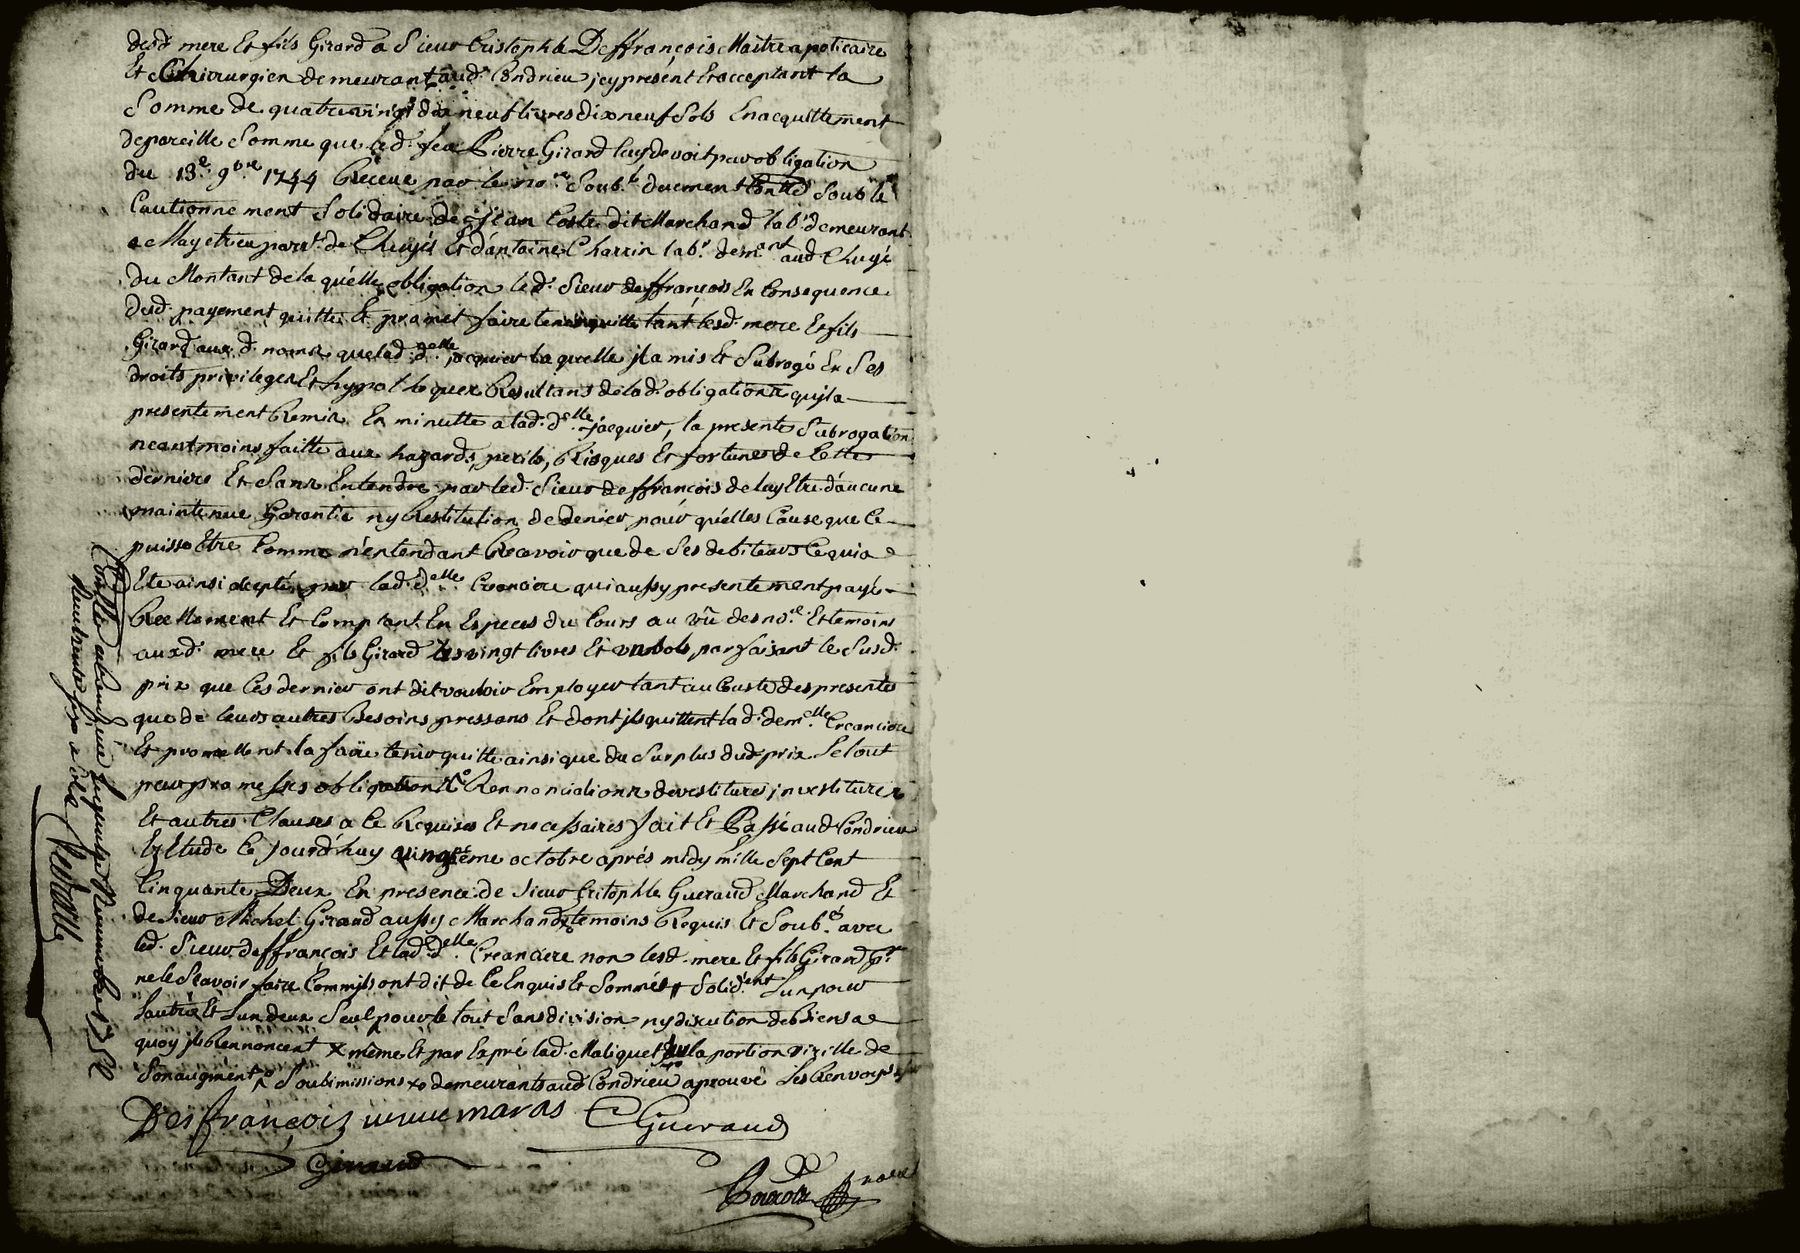 desd. mere Et fils Girard a Sieur Cristophle Deffrançois Maitre apoticaire
Et Chirurgien demeurant aud. Condrieu, jcy présent Et acceptant la
Somme de quatrevingt dix neuf livres dix neuf Sols En acquittement
de pareille Somme que led. feu Pierre Girard luy devoit par obligation
du 13e. 9bre. 1744 Receue par le nore. Soubé. duement Conllé Soub le
Cautionnement Solidaire de Jean Coste dit Marchand labr. demeurant
a Chuyé Et d'antoine Charrin labr. demant. aud Chuyé
du Montant de la quelle obligation led. Sieur deffrançois En Consequence
dud. payement quitte Et promet faire tenir quitte tant lesd. mere Et fils
Girard aux d. noms que lad. delle. jacquier la quelle jl a mis Et Subrogé En Ses
droits privileges Et hypotheques Resultans de lad. obligation qu'jl a
presentement Remis En minutte a lad. delle. jacquier, la presente Subrogation
neantmoins faitte aux hazards, perils, Risques Et fortunes de Cette
derniere Et Sans Entendre par led. Sieur deffrançois de luy Etre d'aucune
maintenue Garantie ny Restitution de denier pour quelles Cause que Ce
puisse Etre Comme n'entendant Recevoir que de Ses debiteurs Ce qui a
Eté ainsi accepté par lad. delle. Creanciere qui aussy presentement payé
Reellement Et Comptant En Especes du Cours au vû des nore. Et temoins
auxd. mere Et fils Girard les vingt livres Et un Sols parfaisant le Susd.
prix que Ces dernier ont dit vouloir Employer tant au Couste des presentes
que de leurs autres Besoins pressans Et dont jls quittent lad. demelle. Creanciere
Et promettent la faire tenir quitte ainsi que du Surplus dud prix Le tout
par promesses obligations Rennonciations devestitures jnvestitures
Et autres Clauses a Ce Requises Et necessaires fait Et Passé aud Condrieu
Etude Ce jourd'huy vingtième octobre aprés midy mille Sept Cent
Cinquante Deux En presence de Sieur Cristophle Gueraud Marchand Et
de Sieur Michel Giraud aussy Marchand temoins Requis Et Soubés. avec
led. Sieur deffrançois Et lad. delle. Creanciere non lesd. mere Et fils Girard pr.
ne le Scavoir faire Comm'jls ont dit de Ce Enquis Et Sommés # Solident. Lun pour
Lautre Et Lun deux Seul pour le tout Sans division ny discution de Biens a
quoy jls Rennoncent x même Et par Exprés lad. Maliquet la portion virille de
Son augment Soubimissions xo demeurants aud Condrieu aprouvé Les Renvoys
Desfrançois veuve maras C Gueraud
Giraud
Conllé a Condrieu Le Novembre 1752
Recu trente Six Sols